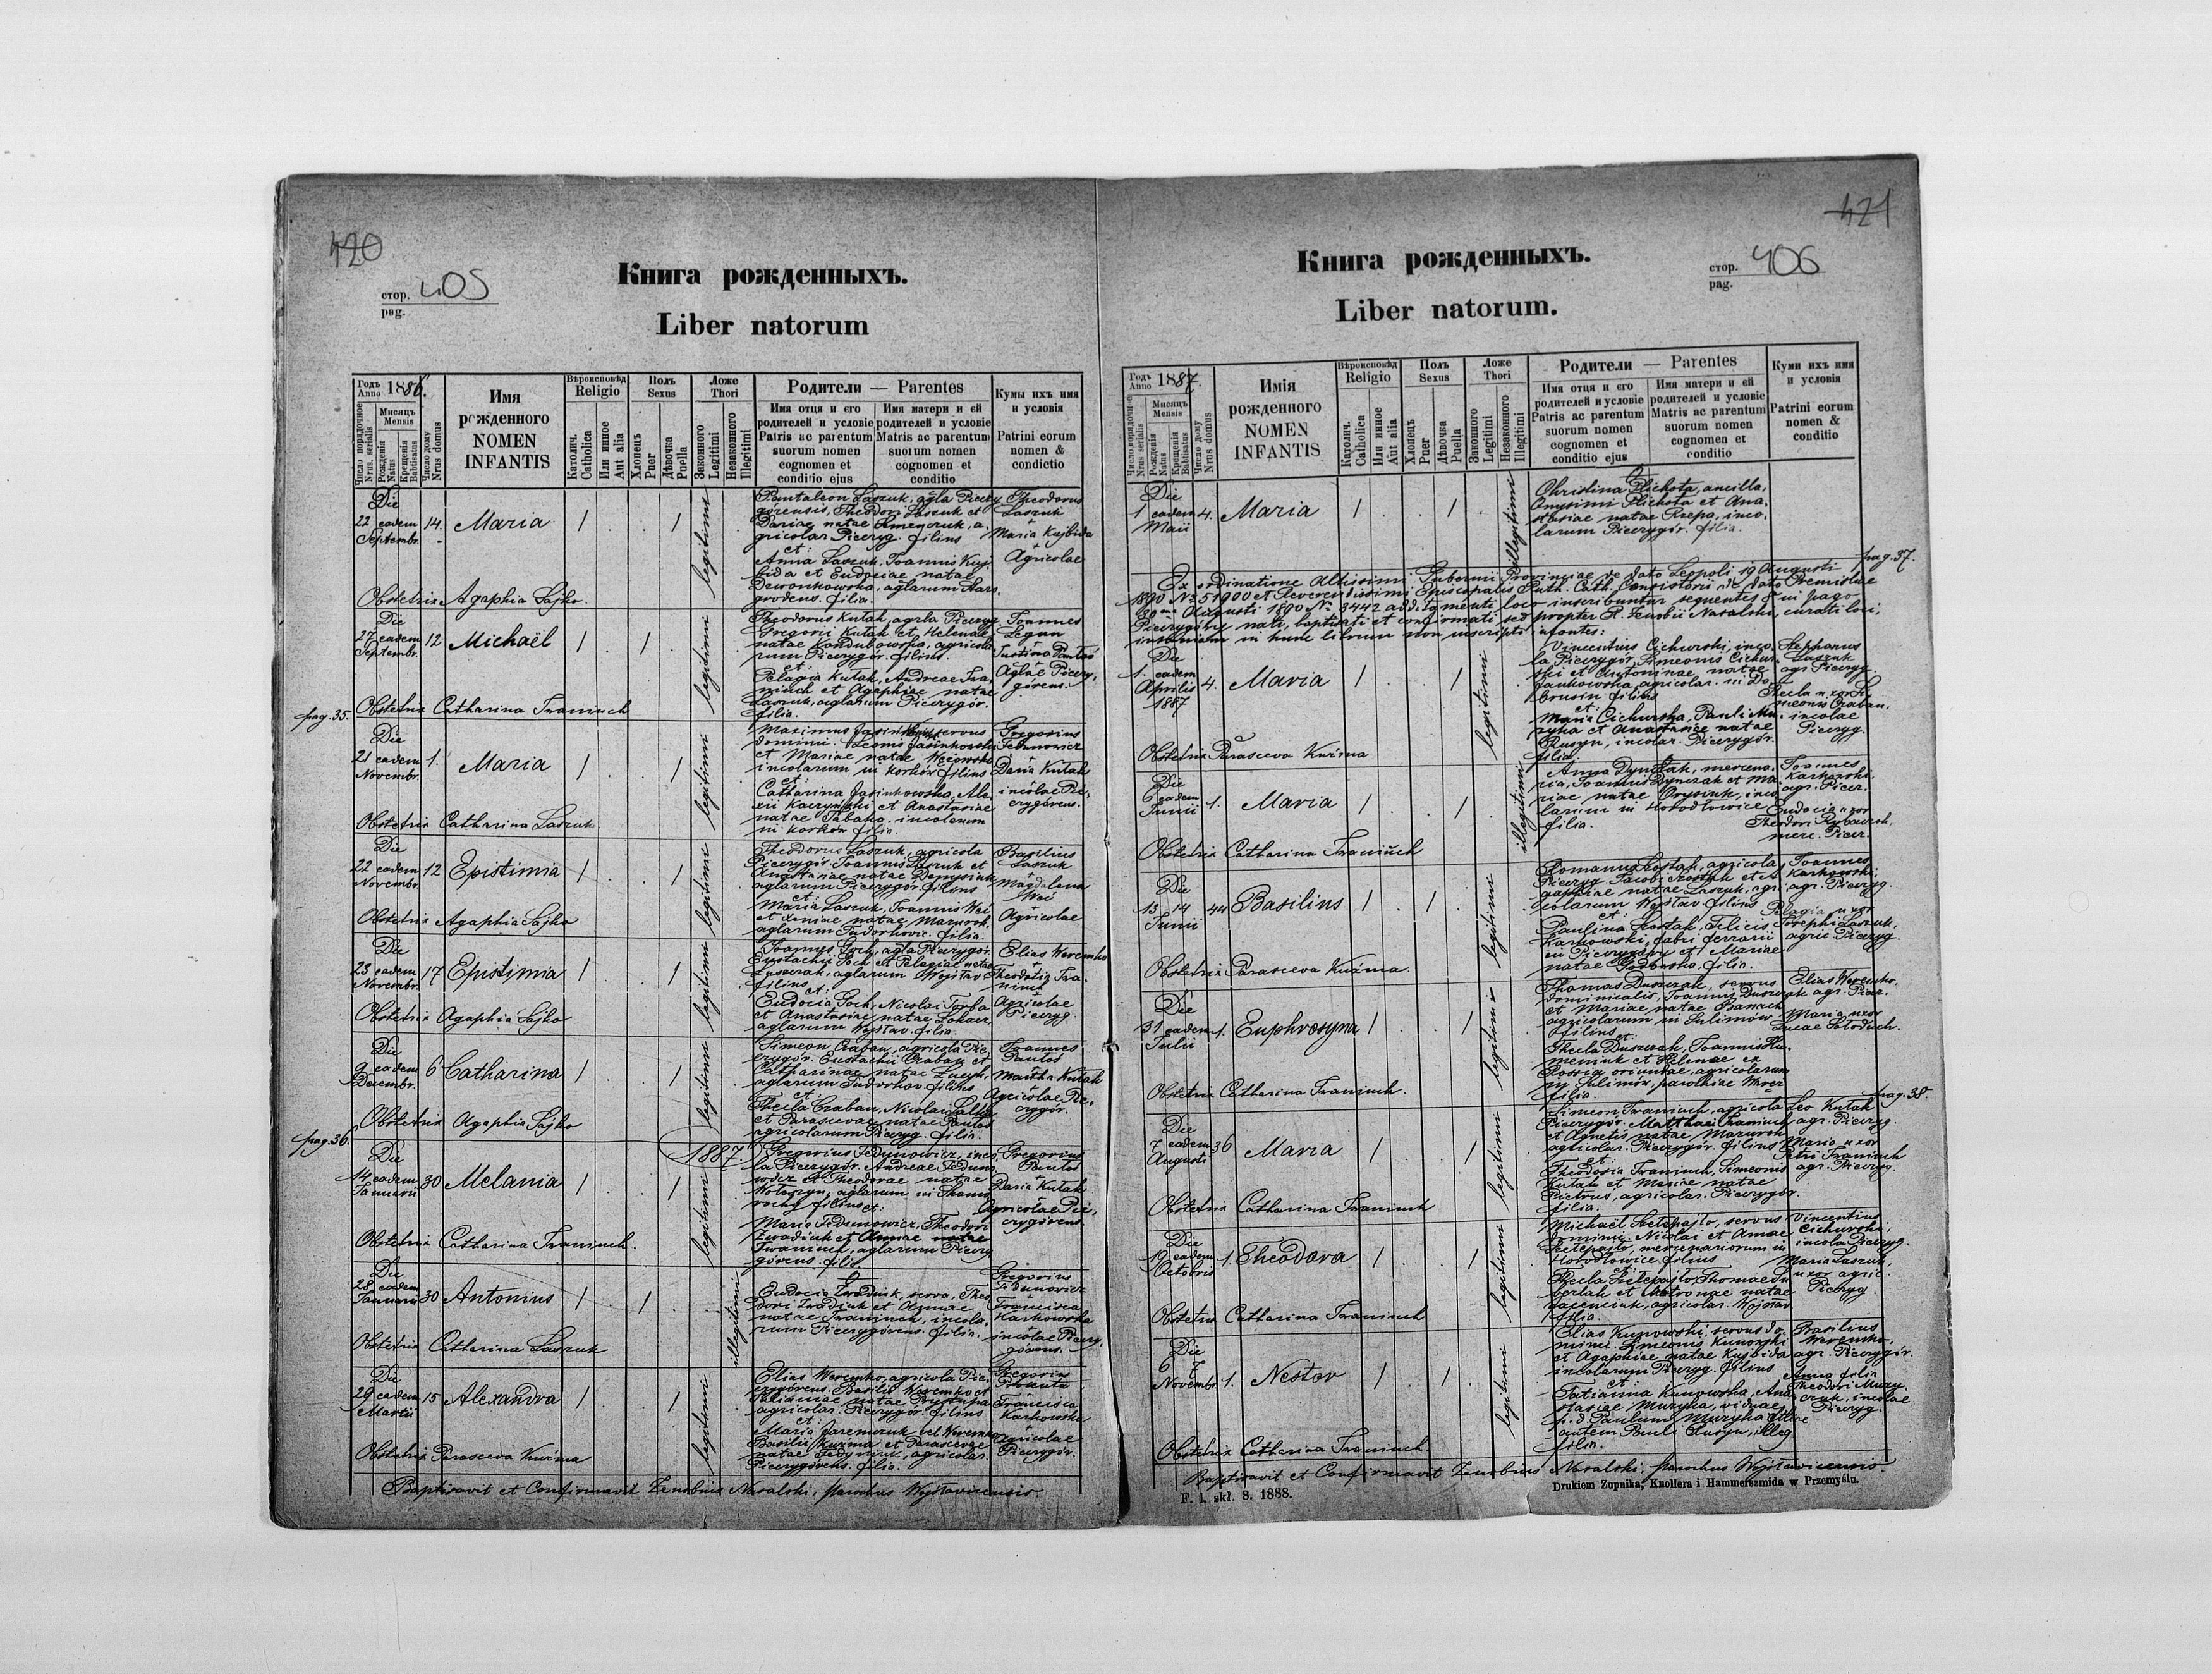 420
стор. 405
pag.
Книга рожденныхъ.
Liber natorum
Годъ 1886.
Anno
Число порядочное
Nrus. serialis
Мисяць
Mensis
Рожденія
Natus
Крещенія
Babtisatus
Число дому
Nrus domus
Имя
рожденного
NOMEN
INFANTIS
Вѣроисповѣд
Religio
Католич.
Catholica
Или инное
Aut alia
Полъ
Sexus
Хлопецъ
Puer
Дѣвочка
Puella
Ложе
Thori
Законного
Legitimi
Незаконного
Illegitimi
Родители — Parentes
Имя отца и его
родителей и условіе
Patris ac parentum
suorum nomen
cognomen et
conditio ejus
Имя матери и ей
родителей и условіе
Matris ac parentum
suorum nomen
cognomen et
conditio
Кумы ихъ имя
и условія
Patrini eorum
nomen &
condictio
Die
22 eadem 14. Maria 1 . . 1 legitimi
Septembr.
Pantaleon Laszuk, agla Piczy
gorensis, Theodori Laszuk et
Dariae natae Semenczuk, a.
gricolar. Piczyg. filius
et:
Anna Laszuk, Joannis Kuj.
bida et Eudociae natae
Dzwonkowska, aglarum Nars
grodens. filia.
Theodorus
Laszuk
+
Maria Kujbida
+
Agricolae
Obstetrix Agaphia Sajko.
Die
27 eadem 12 Michaël 1 . 1 legitimi
Septembr.
Theodorus Kutah, agrla Piczyg.
Gregorii Kutah et Helenae
natae Kondubowska, agricola
rum Piczygór. filius
et:
Pelagia Kutah, Andreae Iwa
niuch et Agaphiae natae
Laszuk, aglarum Piczygór.
filia.
Joannes
Legun
Justina Pantos
Aglae Piczy.
górens.
Obstetrix Catharina Iwaniuch
pag. 35.
Die
21 eadem 1. Maria 1 . . 1 legitimi
Novembr.
Maximus Jasinkowski servus
dominii
et Mariae natae
incolarum in Korków filius
et:
Catharina Jasinkowska, Ale
xii Kaczyński et Anastasiae
natae Tabaka, incolarum
in Korków filia.
Gregorius
Fedunowicz
+
Daria Kutah
incolae Pi
czygórens.
Obstetrix Catharina Laszuk.
Die
22 eadem 12 Epistimia 1 . . 1 legitimi
Novembr.
Theodorus Laszuk, agricola
Piczygór. Joannis Laszuk et
Anastasiae natae Denysiuk
aglarum Piczygór. filius
et:
Maria Laszuk, Joannis Wei
et Xeniae natae Mazurok
aglarum Tudorkowic. filia.
Basilius
Laszuk
+
Magdalena
Wei
+
Agricolae
Obstetrix Agaphia Sajko
Die
23 eadem 17 Epistimia 1 . . 1 legitimi
Novembr.
Joannes Goch, agla Piczygór.
Eustachii Goch et Pelagiae natae
aglarum Wojslav
filius
et:
Eudocia Goch, Nicolai Torba
et Anastasiae natae
aglarum Wojslav. filia.
Elias Weremko
+
Theodosia Iwa.
niuch
Agricolae
Piczyg.
Obstetrix Agaphia Sajko
Die
9 eadem 6 Catharina 1 . . 1 legitimi
Decembr.
Simeon Craban, agricola Pic
zygór. Eustachii Craban et
Catharinae natae
aglarum Tudorkow filius
et:
Thecla Craban, Nicolai
et Parascevae natae Pantos
agricolarum Piczyg. filia.
Joannes
Pantos
+
Martha Kutah
+
Agricolae Pi.
czygór.
Obstetrix Agaphia Sajko
pag. 36.
1887.
Die
14 eadem 30 Melania 1 . . 1 legitimi
Januarii
Gregorius Fedynowicz, inco
la Piczygór. Andreae Feduno
wicz et Theodorae natae
Wołoszyn, aglarum in
filius et:
Maria Fedunowicz, Theodori
Zwadiuk et Annae natae
Iwaniuch, aglarum Piczy
górens. filia
Gregorius
Pantos
+
Daria Kutah
Agricolae Pi
czygórens.
Obstetrix Catharina Iwaniuch.
Die
28 eadem 30 Antonius 1 . 1 illegitimi
Januarii
0
Eudocia Zwadiuk, serva, Theo
dori Zwadiuk et Annae
natae Iwaniuch, incola.
rum Piczygórens. filia.
Gregorius
Fedunowicz
+
Francisca
Karkowska
incolae Piczy.
górens.
Obstetrix Catharina Laszuk
Die
29 eadem 15 Alexandra 1 . . 1 legitimi
Martii
Elias Weremko, agricola Pic
zygórens. Basilii Weremko et
Julianae natae Prystupa
agricolar. Piczygór. filius
et:
Maria Jaremczuk vel Weremko
Basilii Kuźma et Parascevae
natae Fedyniuk, agricolar.
Piczygórens. filia.
Gregorius
Prokuta
+
Francisca
Karkowska
Agricolae
Piczygór.
Obstetrix Parasceva Kuźma
Baptisavit et Confirmavit Zenobius Nasalski, parochus Wojslavicensis.
421
Книга рожденныхъ.
Liber natorum.
стор. 406
pag.
Годъ 1887.
Anno
Число порядочне
Nrus serialis
Мисяць
Mensis
Рожденія
Natus
Крещенія
Babtisatus
Число дому
Nrus domus
Имія
рожденного
NOMEN
INFANTIS
Вѣроисповѣд
Religio
Католич.
Catholica
Или инное
Aut alia
Полъ
Sexus
Хлопецъ
Puer
Дѣвочка
Puella
Ложе
Thori
Законного
Legitimi
Незаконного
Illegitimi
Родители — Parentes
Имя отца и его
родителей и условіе
Patris ac parentum
suorum nomen
cognomen et
conditio ejus
Имя матери и ей
родителей и условіе
Matris ac parentum
suorum nomen
cognomen et
conditio
Куми ихъ имя
и условія
Patrini eorum
nomen &
conditio
Die
1 eadem 4. Maria 1 . . 1 illegitimi
Maii
0
Christina Plichota, ancilla,
Onysimi Plichota et Ana.
stasiae natae Rzepa, inco.
larum Piczygór. filia.
pag. 37.
Ex ordinatione Altissimi Gubernii Provinciae de dato Leopoli 19 Augusti
1890 No 51900 et Reverendissimi Episcopalis Ruth. Cath. Consistorii de dato Premisliae
Augusti 1890 No 3442 additamenti loco inscribuntur sequentes in pago
Piczygóry nati, baptisati et confirmati sed propter R. Zenobii Nasalski, curati loci,
in hunc librum non inscripti infantes:
Die
1. eadem 4. Maria 1 . . 1 legitimi
Aprilis
1887
Vincentius Cichurski, inco.
la Piczygór, Simeonis Cichur.
ski et Antoninae natae
Jankowska, agricolar. in Do
brusin filius
et:
Maria Cichurska, Pauli Mu
zyka et Anastasiae natae
Rusyn, incolar. Piczygór.
filia.
Stephanus
Laszuk
agr. Piczyg.
+
Thecla uxor Si
meonis Craban,
incolae
Piczyg.
Obstetrix Parasceva Kuźma
Die
6 eadem 1. Maria 1 . . 1 illegitimi
Junii
Anna Dynczak, mercena.
ria, Joannis Dynczak et Ma
riae natae Orysiuk, inco
larum in Horodłowice
filia.
Joannes
Karkowski.
agr. Piczr.
Eudocia uxor
Theodori Rybaczok,
merc. Piczr.
Obstetrix Catharina Iwaniuch
Die
13 14 44 Basilius 1 . 1 legitimi
Junii
Romanus Kostak, agricola
Piczyg. Jacobi Kostak et A
gaphiae natae Laszuk, agri
colarum Wojslav. filius
et:
Paulina Kostak, Felicis
Karkowski, fabri ferrarii
in Piczygóry et Mariae
natae filia.
Joannes
Karkowski,
agr. Piczyg.
Pelagia uxor
Josephi Laszuk,
agric. Piczyg.
Obstetrix Parasceva Kuźma.
Die
31 eadem 1. Euphrosyna 1 . . 1 legitimi
Julii
Thomas Duszczak, servus
dominicalis, Joannis Duszczak
et Mariae natae Banach
agricolarum in Sulimów
filius
et:
Thecla Duszczak, Joannis
et Helenae ex
Rossia oriundae, agricolarum
in Sulimów, parochiae
filia.
Elias Weremko.
agr. Piczr.
+
Maria uxor
Lucae Sołoduch.
Obstetrix Catharina Iwaniuch.
pag. 38.
Die
7 eadem 36 Maria 1 . . 1 legitimi
Augusti
Simeon Iwaniuch, agricola
Piczygór. Matthaei Iwaniuch
et Agnetis natae Mazurok
agricolar. Piczygór. filius
et:
Theodosia Iwaniuch, Simeonis
Kutah et Mariae natae
Pietrus, agricolar. Piczygór.
filia.
Leo Kutah
agr. Piczyg.
Maria uxor
Petri Iwaniuch
agr. Piczyg.
Obstetrix Catharina Iwaniuch
Die
19 eadem 1. Theodora 1 . . 1 legitimi
Octobris
Michaël servus
dominii Nicolai et Annae
mercenariorum in
Horodłowice filius
et:
Thecla Thomae
et natae
agricolar. Wojslav
filia.
Vincentius
Cichurski,
incola Piczyg.
Maria Laszuk,
uxor agric.
Piczyg.
Obstetrix Catharina Iwaniuch
Die
6 7 1. Nestor 1 . 1 legitimi
Novembr.
Elias Kunowski, servus do.
minii, Simeonis Kunowski
et Agaphiae natae Kujbida
incolarum Piczyg. filius
et:
Tatianna Kunowska, Ana
stasiae Muzyka, viduae
p. d. Paulum Muzyka
autem Pauli Rusyn, illeg
filia.
Basilius
Weremko,
agr. Piczygór.
Anna filia
Theodori Muzy
czuk, incolae
Piczyg.
Obstetrix Catharina Iwaniuch
Baptisavit et Confirmavit Zenobius Nasalski, parochus Wojslavicensis.
F. I. skł. 8. 1888.
Drukiem Żupnika, Knollera i Hammerszmida w Przemyślu.